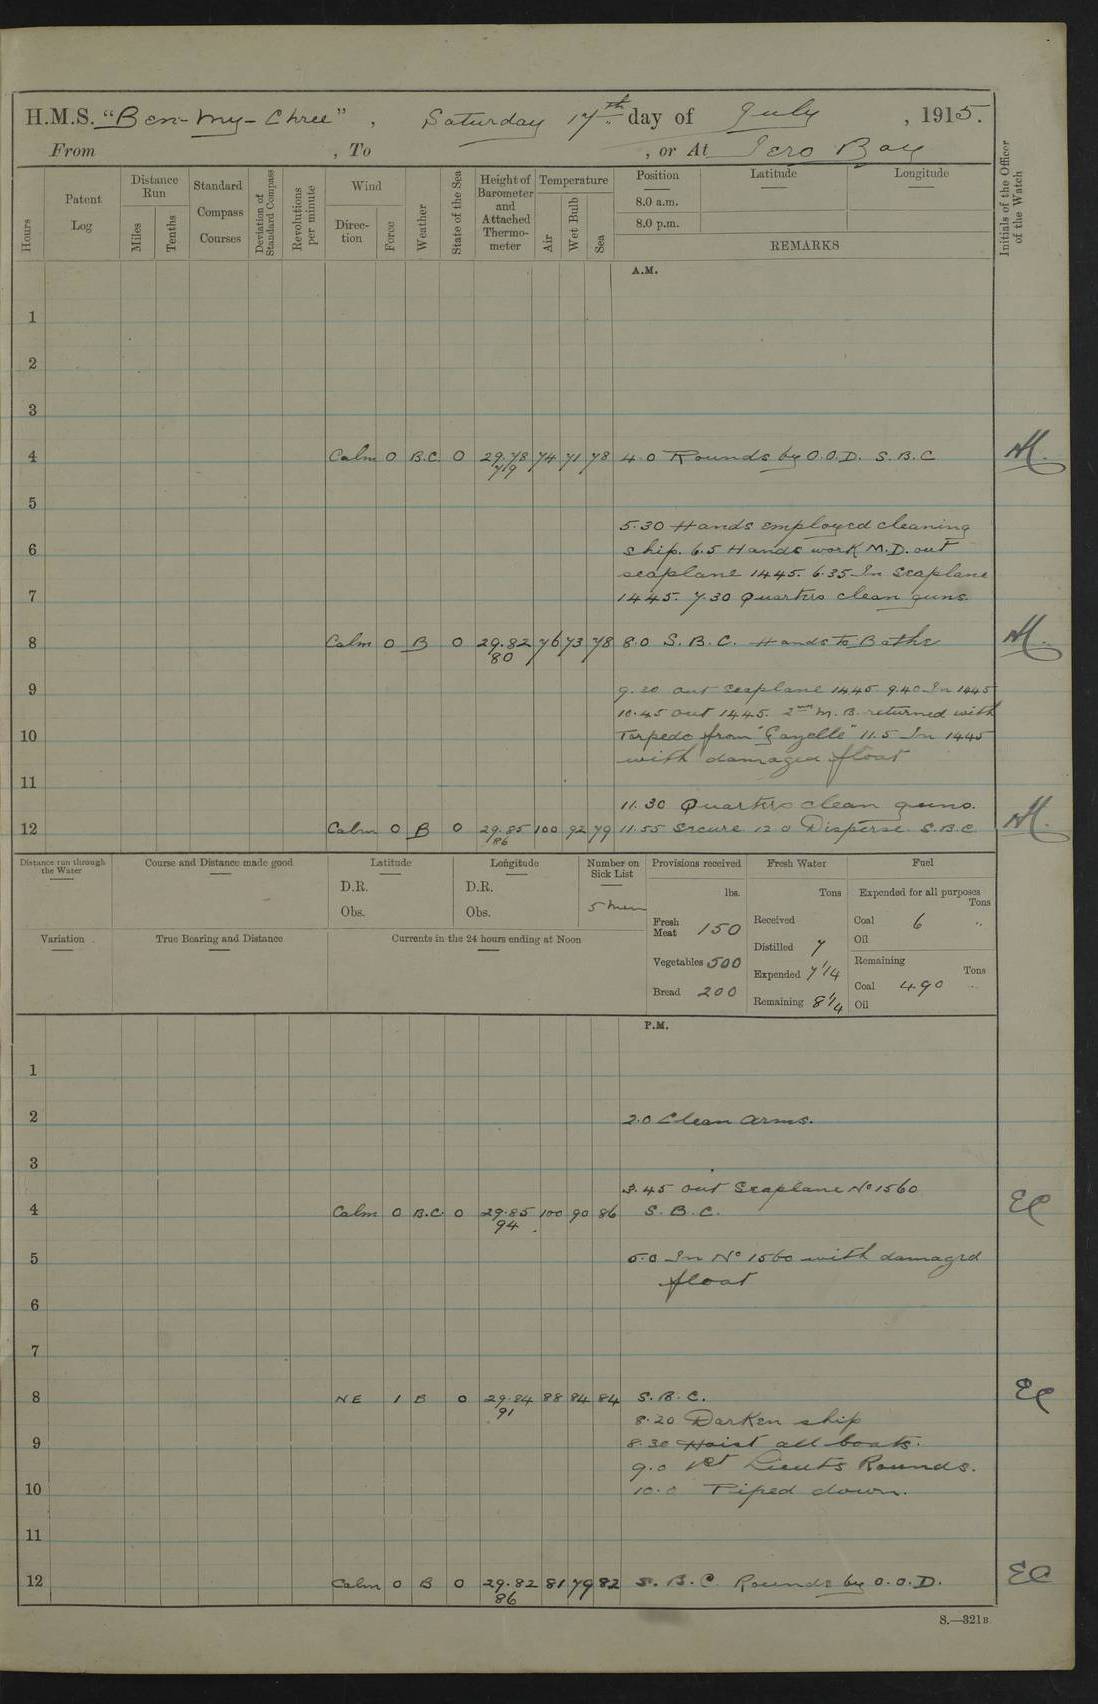 H.M.S. "Ben-my-Chree", Saturday 17th day of July, 1915.
From , To , or At Iero Bay
Hours
Patent Log
Distance Run
Miles
Tenths
Standard Compass Courses
Deviation of Standard Compass
Revolutions per minute
Wind
Direction
Force
Weather
State of the Sea
Height of Barometer and Attached Thermometer
Temperature
Air
Wet Bulb
Sea
Position
8.0 a.m.
8.0 p.m.
Latitude
Longitude
REMARKS
Initials of the Officer of the Watch
A.M.
1
2
3
4 Calm 0 B.C. 0 29.78 74 71 78 4.0 Rounds by O.O.D. S.B.C
79
5
5.30 Hands employed cleaning
6 ship. 6.5 Hands work M.D. out
seaplane 1445. 6.35 In Seaplane
7 1445. 7.30 Quarters clean guns.
8 Calm 0 B 0 29.82 76 73 78 8.0 S.B.C. Hands to Bathe
80
9 9.20 out seaplane 1445 9.40 In 1445
10.45 out 1445. 2nd M.B. returned with
10 Torpedo from "Gazelle" 11.5 In 1445
with damaged float
11
11.30 Quarters clean guns.
12 Calm 0 B 0 29.85 100 92 79 11.55 Secure 12 0 Disperse S.B.C
86
Distance run through the Water
Course and Distance made good
Latitude
D.R.
Obs.
Longitude
D.R.
Obs.
Number on Sick List
5 men
Provisions received
lbs.
Fresh Meat 150
Vegetables 500
Bread 200
Fresh Water
Tons
Received
Distilled 7
Expended 7 1/4
Remaining 8 1/4
Fuel
Expended for all purposes
Tons
Coal 6 "
Oil
Remaining
Tons
Coal 490 "
Oil
Variation
True Bearing and Distance
Currents in the 24 hours ending at Noon
P.M.
1
2 2.0 Clean Arms.
3
3.45 out Seaplane No 1560
4 Calm 0 B.C. 0 29.85 100 90 86 S.B.C. EC
94
5 5.0 In No 1560 with damaged
float
6
7
8 NE 1 B 0 29.84 88 84 84 S.B.C. EC
91
8.20 Darken ship
9 8.30 Hoist all boats.
9.0 1st Lieuts Rounds.
10 10.0 Piped down.
11
12 Calm 0 B 0 29.82 81 79 82 S.B.C. Rounds by O.O.D. EC
86
S.—321B